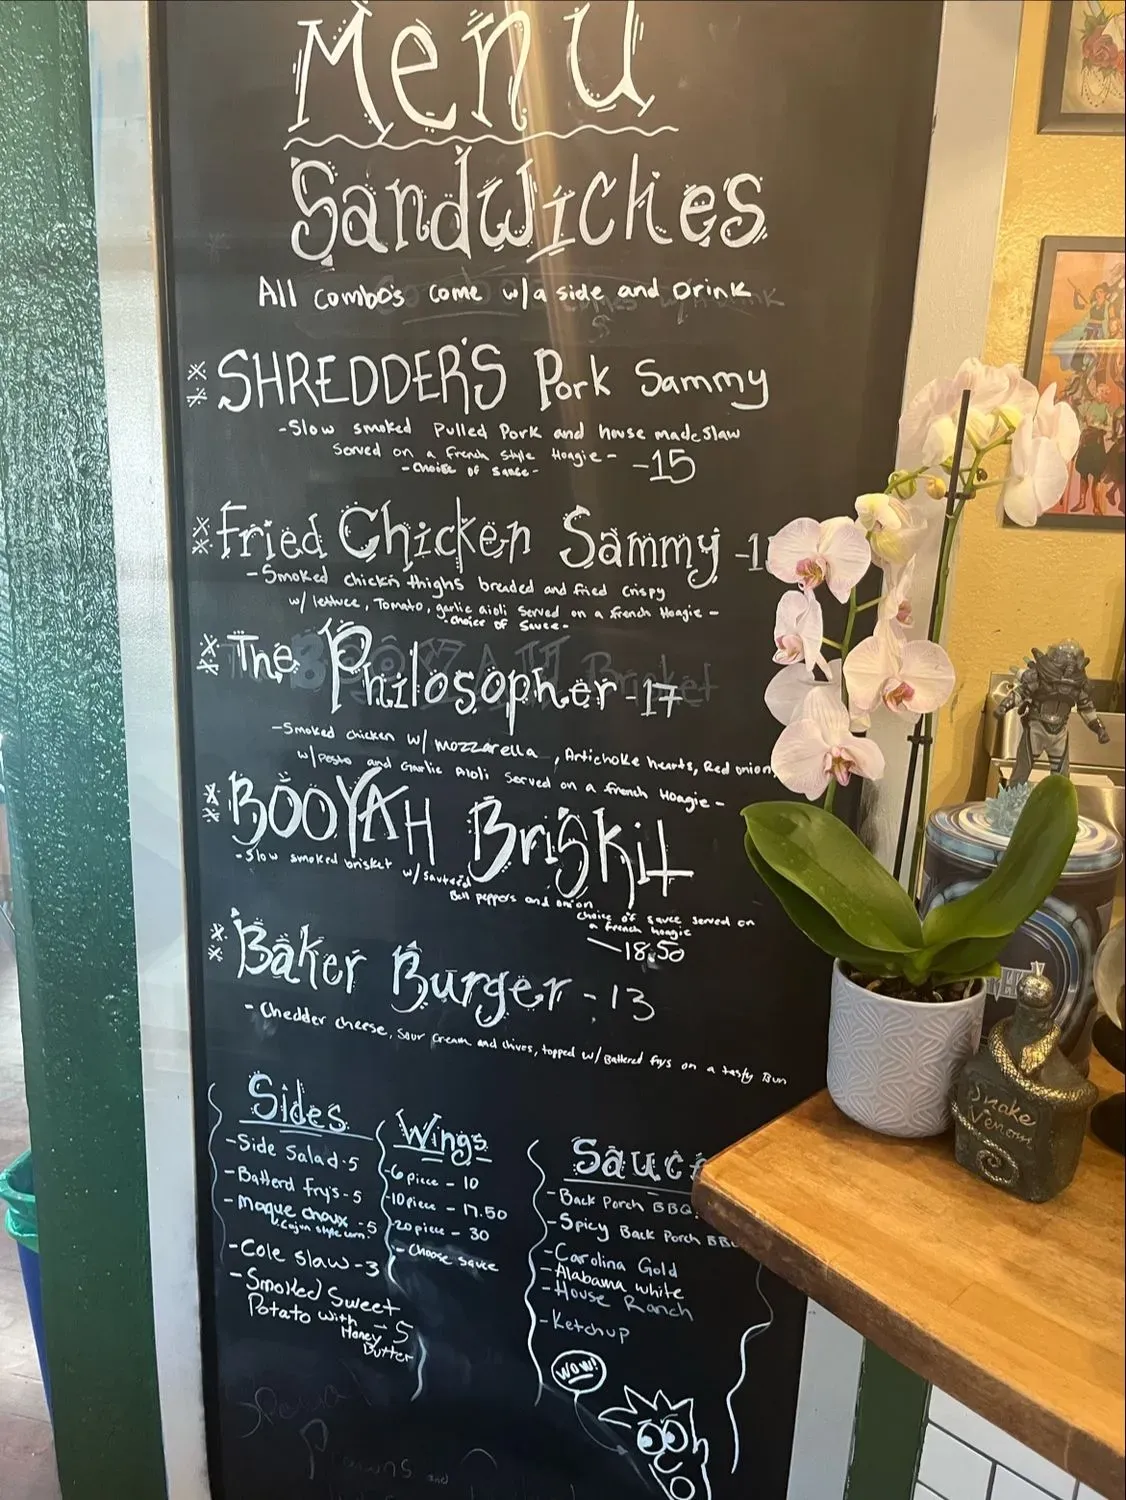 Menu
Sandwiches
All combo's come w/a side and Drink
SHREDDER'S Pork Sammy
-Slow smoked Pulled Pork and house made slaw
Served on a French Style Hoagie-
-Choice of sauce-
-15
Fried Chicken Sammy
-Smoked chick'n thighs breaded and fried crispy
w/ lettuce, Tomato, garlic aioli Served on a French Hoagie-
-choice of Sauce-
The Philosopher -17
-Smoked chicken w/ mozzarella, Artichoke hearts, Red onion,
w/pesto and Garlic Aioli Served on a french Hoagie-
BOOYAH Briskit
-Slow smoked brisket w/sauteed
Bell peppers and onion
choice of sauce served on
a french hoagie
-18.50
Baker Burger -13
-Chedder cheese, Sour Cream and chives, topped w/Battered frys on a tasty Bun
Sides
-Side Salad-5
-Batterd fry's-5
-Maque choux -5
Cajun style corn
-Cole slaw-3
-Smoked Sweet
Potato with -5
Honey
Butter
Wings
-6 piece - 10
-10 piece - 17.50
-20 piece - 30
-Choose sauce
Sauc
-Back Porch BBQ
-Spicy Back Porch
-Carolina Gold
-Alabama white
-House Ranch
-Ketchup
WOW!
Snake
Venom